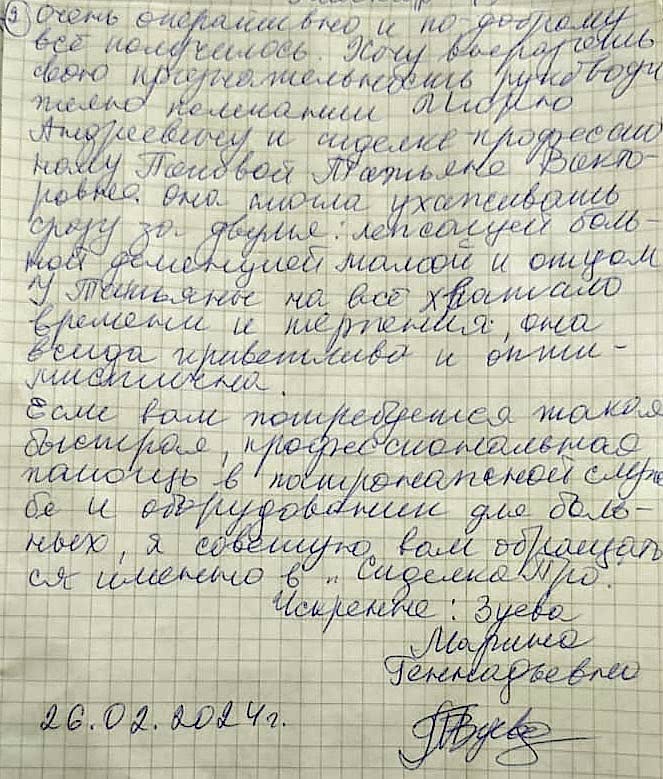 2 очень оперативно и по-доброму
всё получилось. Хочу выразить
свою признательность руководи
телю компании
Андреевичу и сиделке-профессио
налу Поповой Татьяне Викто-
ровне. она смогла ухаживать
сразу за двумя: лежащей боль-
ной деменцией мамой и отцом
У Татьяны на всё хватало
времени и терпения, она
всегда приветлива и опти-
мистична.
Если вам потребуется такая
быстрая, профессиональная
помощь в патронажной служ
бе и оборудовании для боль-
ных, я советую вам обращать
ся именно в „Сиделка Про".
Искренне: Зуева
Марина
Геннадьевна
26.02.2024г.